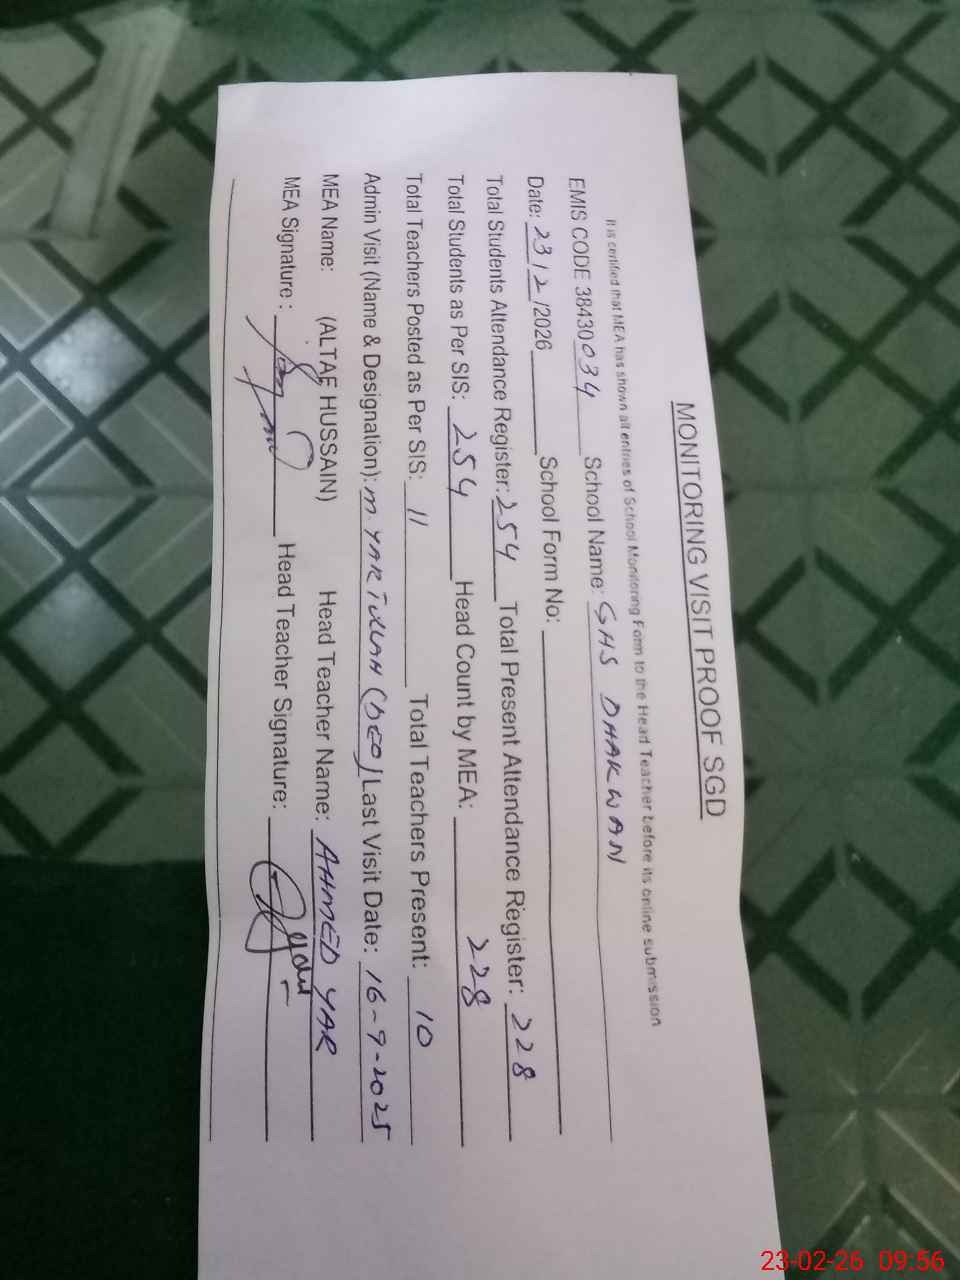 MONITORING VISIT PROOF SGD
It is certified that MEA has shown all entries of School Monitoring Form to the Head Teacher before its online submission
EMIS CODE 38430034 School Name: GHS DHAKWAN
Date: 23/2/2026 School Form No:
Total Students Attendance Register: 254 Total Present Attendance Register: 228
Total Students as Per SIS: 254 Head Count by MEA: 228
Total Teachers Posted as Per SIS: 11 Total Teachers Present: 10
Admin Visit (Name & Designation): M. YAR (DEO) Last Visit Date: 16-9-2025
MEA Name: (ALTAF HUSSAIN) Head Teacher Name: AHMED YAR
MEA Signature: Head Teacher Signature:
23-02-26 09:56